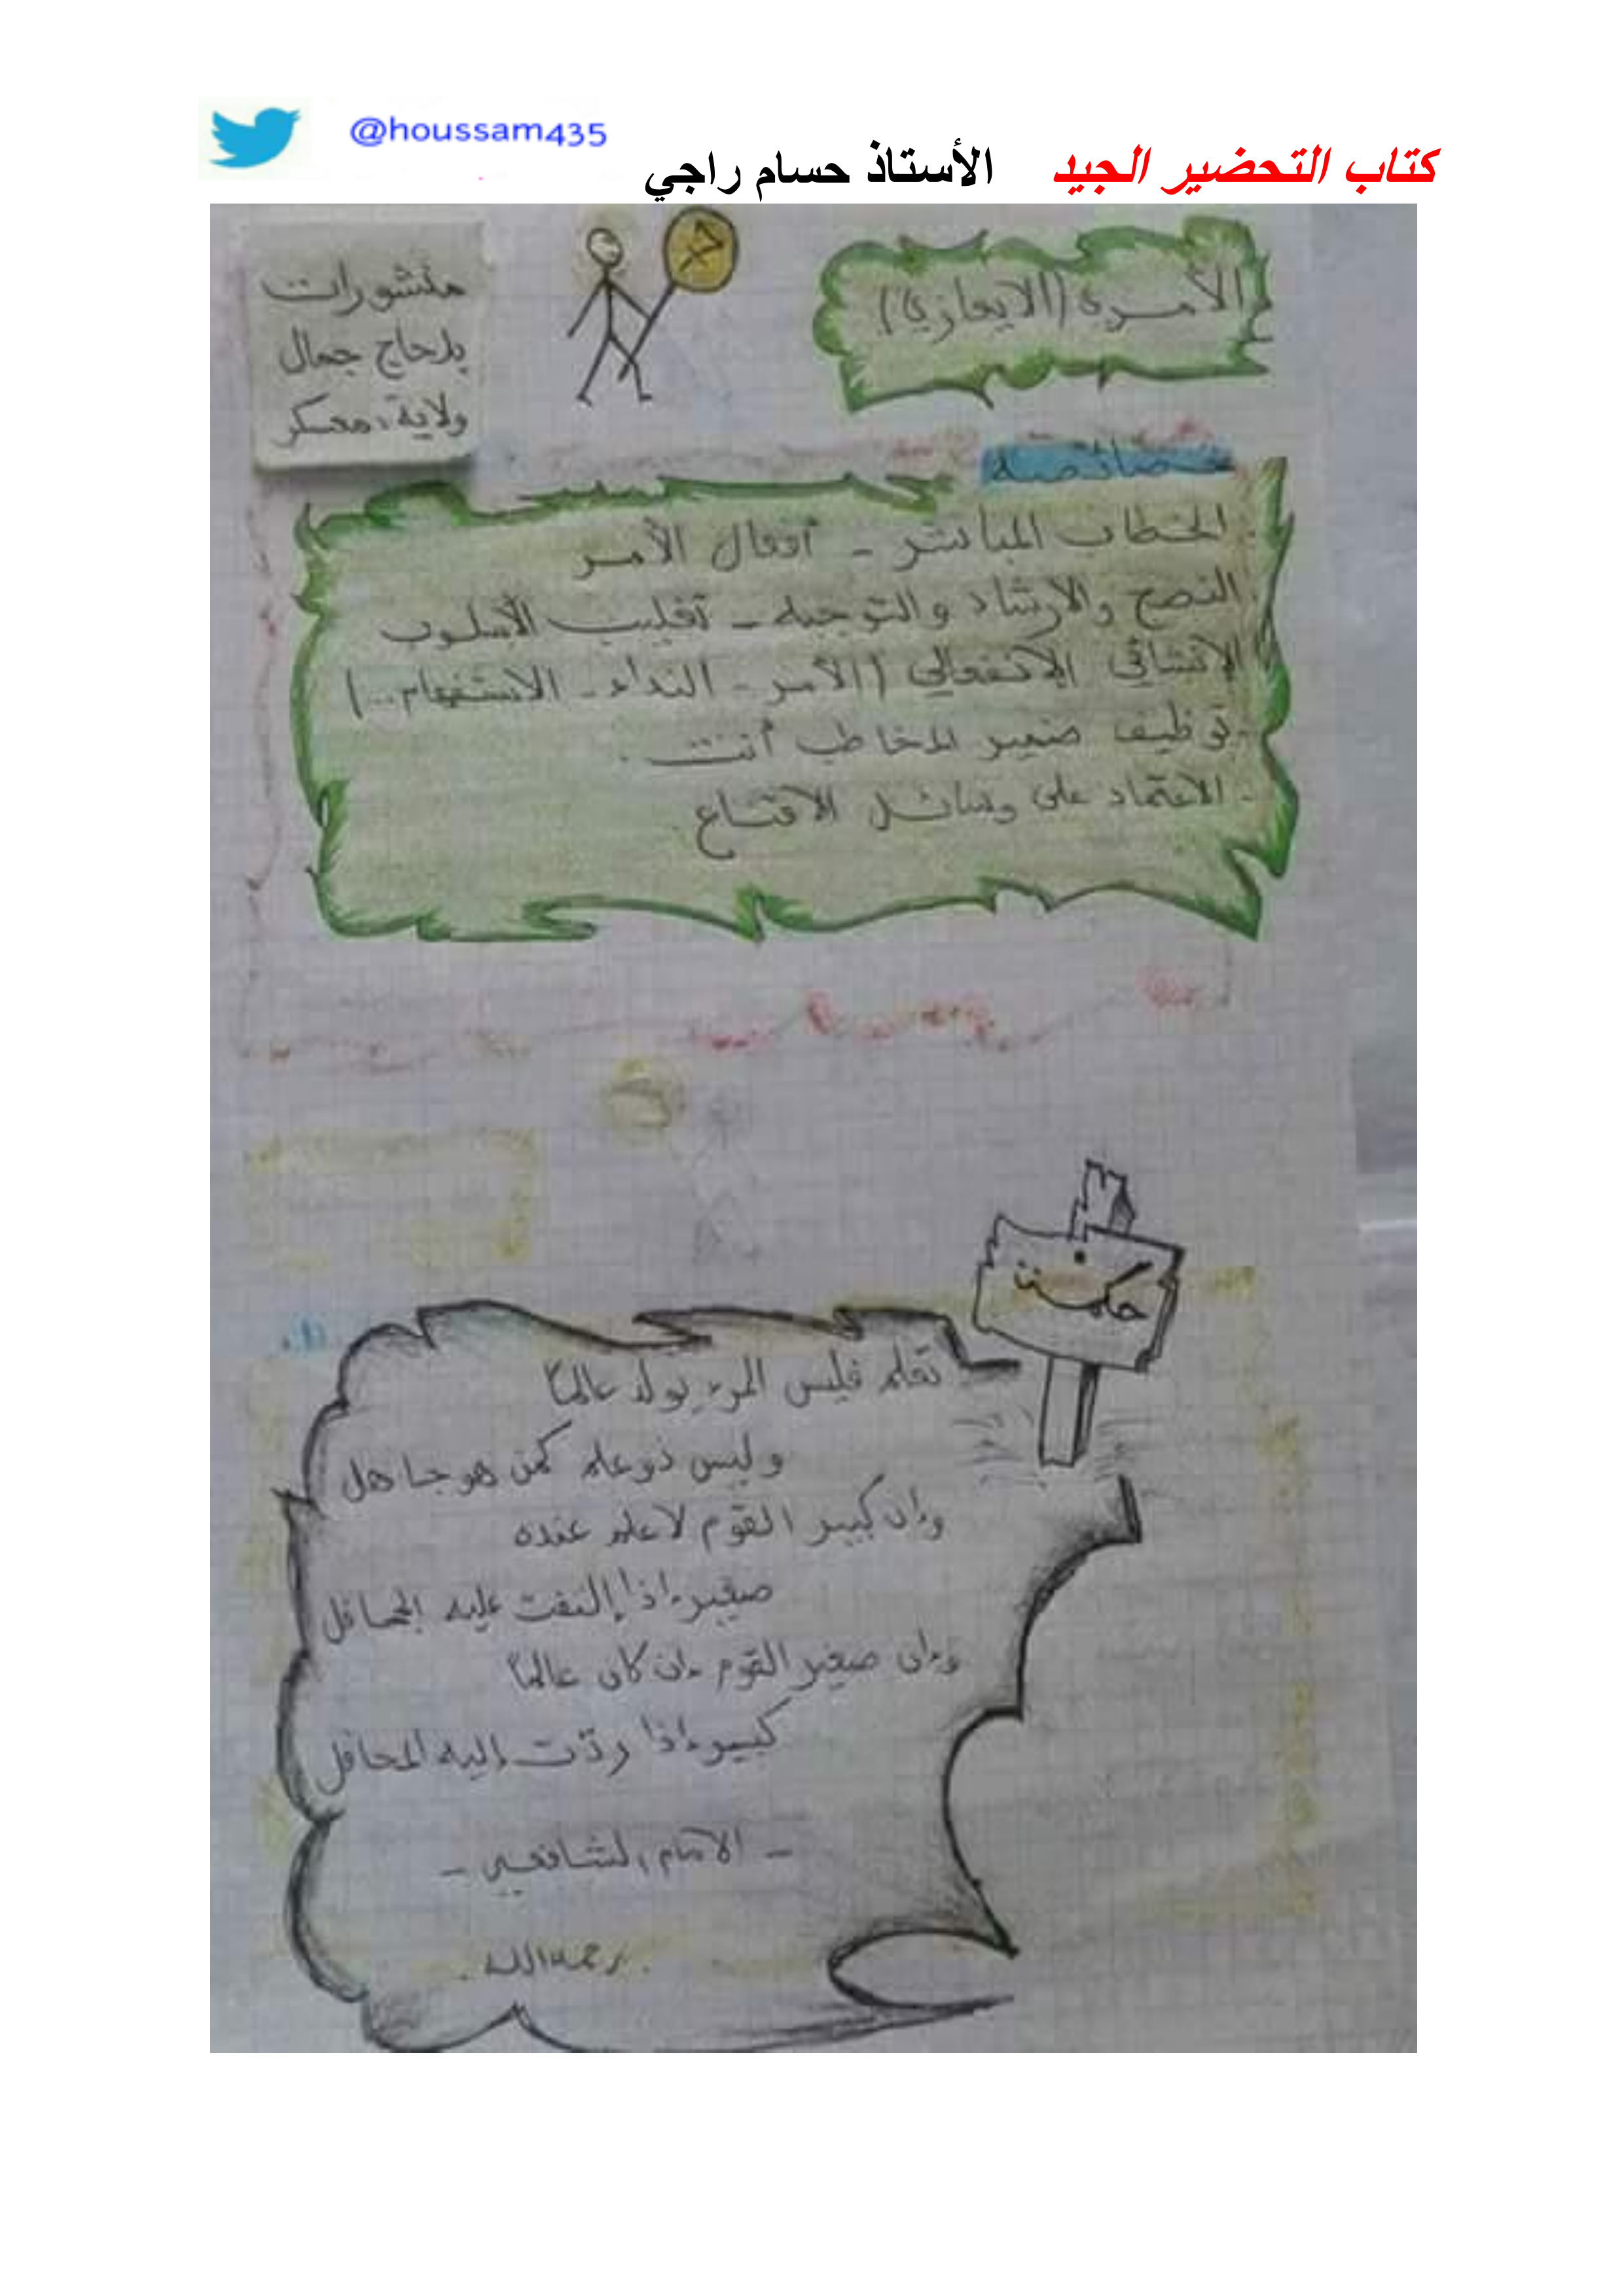 @houssam435
كتاب التحضير الجيد الأستاذ حسام راجي
منشورات
بلحاج جمال
ولاية معسكر
الأمري (الايعازي)
خصائصه
- الخطاب المباشر - أفعال الأمر
- النصح والارشاد والتوجيه - تغليب الأسلوب
الإنشائي الإنفعالي (الأمر - النداء - الاستفهام...)
- توظيف ضمير المخاطب أنت .
- الاعتماد على وسائل الاقناع
حكمت
تعلم فليس المرء يولد عالمًا
وليس ذو علم كمن هو جاهل
وإن كبير القوم لا علم عنده
صغير إذا إلتفت عليه الجحافل
وإن صغير القوم إن كان عالمًا
كبير إذا ردّت إليه المحافل
- الامام الشافعي -
. رحمه الله .